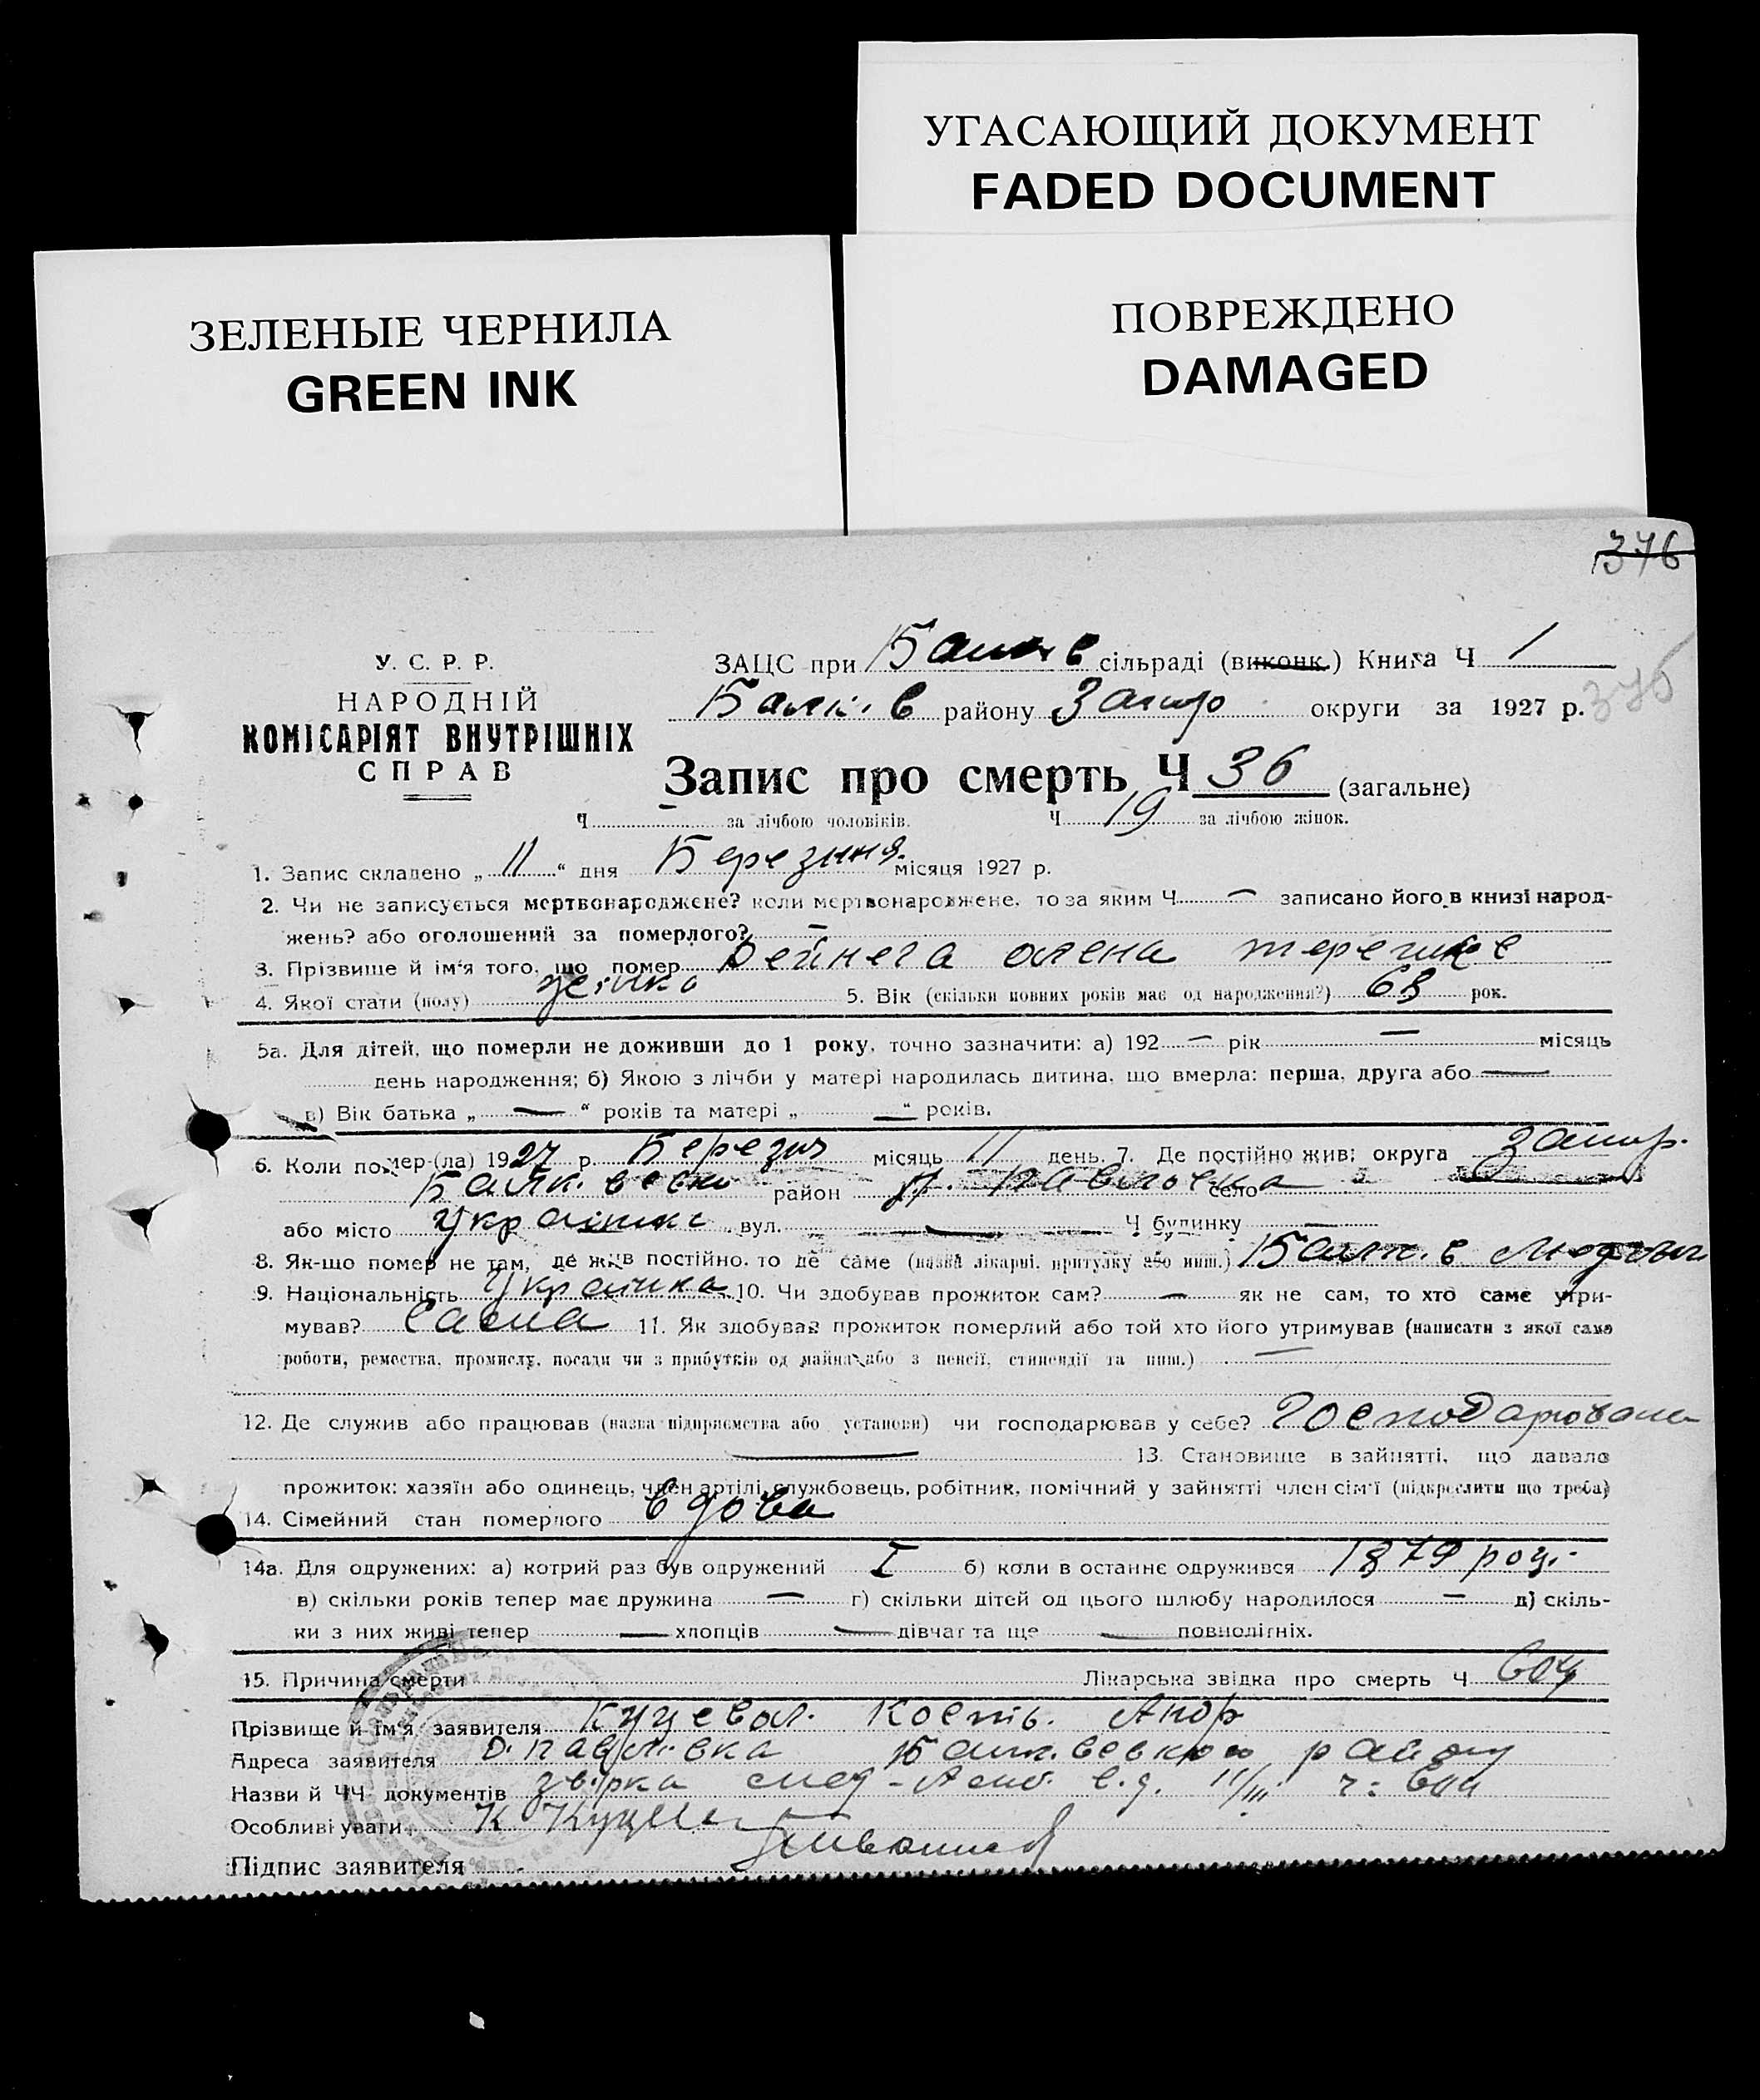 УГАСАЮЩИЙ ДОКУМЕНТ
FADED DOCUMENT
ЗЕЛЕНЫЕ ЧЕРНИЛА
GREEN INK
ПОВРЕЖДЕНО
DAMAGED
376
У. С. Р. Р.
НАРОДНІЙ
КОМІСАРІЯТ ВНУТРІШНІХ
СПРАВ
ЗАЦС при сільраді (виконк.) Книга Ч 1
району Запор округи за 1927 р. 376
Запис про смерть Ч 36 (загальне)
Ч – за лічбою чоловіків. Ч 19 за лічбою жінок.
1. Запис складено „ 11 “ дня Березня місяця 1927 р.
2. Чи не записується мертвонароджене? коли мертвонароджене, то за яким Ч – записано його в книзі народ-
жень? або оголошений за померлого? –
3. Прізвище й ім'я того, що помер Дейнега олена
4. Якої стати (полу) жінка 5. Вік (скільки повних років має од народження?) 68 рок.
5а. Для дітей, що померли не доживши до 1 року, точно зазначити: а) 192 – рік – місяць
день народження; б) Якою з лічби у матері народилась дитина, що вмерла: перша, друга або —
в) Вік батька „ — “ років та матері „ — “ років.
6. Коли помер (ла) 1927 р. Березня місяць 11 день. 7. Де постійно жив: округа Запор.
район Павловка село
або місто Українка вул. — Ч будинку —
8. Як-що помер не там, де жив постійно, то де саме (назва лікарні, притулку або инш.)
9. Національність Українка 10. Чи здобував прожиток сам? – як не сам, то хто саме утри-
мував? Сама 11. Як здобував прожиток померлий або той хто його утримував (написати з якої саме
роботи, ремества, промислу, посади чи з прибутків од майна або з пенсії, стипендії та инш.) —
12. Де служив або працював (назва підприємства або установи) чи господарював у себе? Господарювала
— 13. Становище в зайнятті, що давало
прожиток: хазяїн або одинець, член артілі, службовець, робітник, помічний у зайнятті член сім'ї (підкреслити що треба)
14. Сімейний стан померлого вдова
14а. Для одружених: а) котрий раз був одружений I б) коли в останнє одружився 1879 році
в) скільки років тепер має дружина – г) скільки дітей од цього шлюбу народилося – д) скіль-
ки з них живі тепер — хлопців — дівчат та ще — повнолітніх.
15. Причина смерти Лікарська звідка про смерть Ч
Прізвище й ім'я заявителя Куцевол. Кость. Андр
Адреса заявителя Павлівка району
Назви й ЧЧ документів 11/III
Особливі уваги
Підпис заявителя